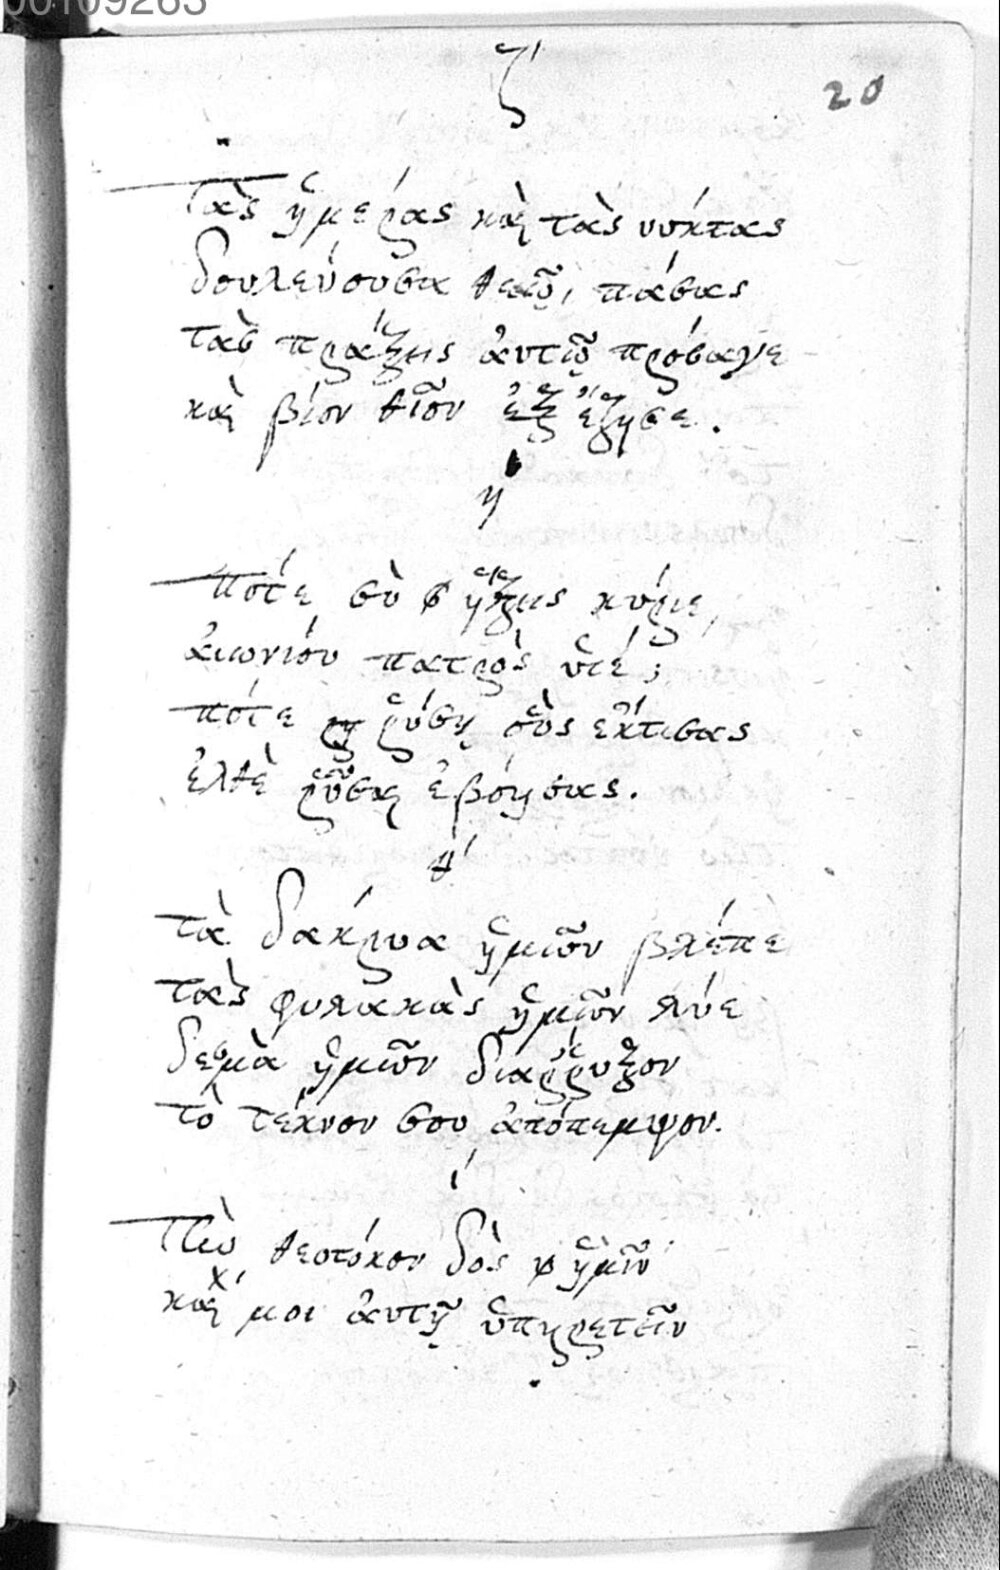 00109263
ζ'
20
Τὰς ἡμέρας καὶ τὰς νύκτας
δουλεύουσα θεῷ, πάσας
τὰς πράξεις ἀυτῷ πρόσαγε
καὶ βίον θεῖον ἔζησε.
η
Πότε σὺ ἥξεις κύριε,
ἀιωνίου πατρὸς ὑιέ;
πότε ῥύσῃ οὓς ἔκτισας
ἐλθὲ ῥῦσαι ἐβόησας.
θ'
τὰ δάκρυα ἡμῶν βλέπε
τὰς φυλακὰς ἡμῶν λύε
δεσμὰ ἡμῶν διάῤῥυξον
τὸ τέκνον σου ἀπόπεμψον.
ι'
Τὴν θεοτόκον δὸς ἡμῖν
καί μοι ἀυτῇ ὑπηρετεῖν